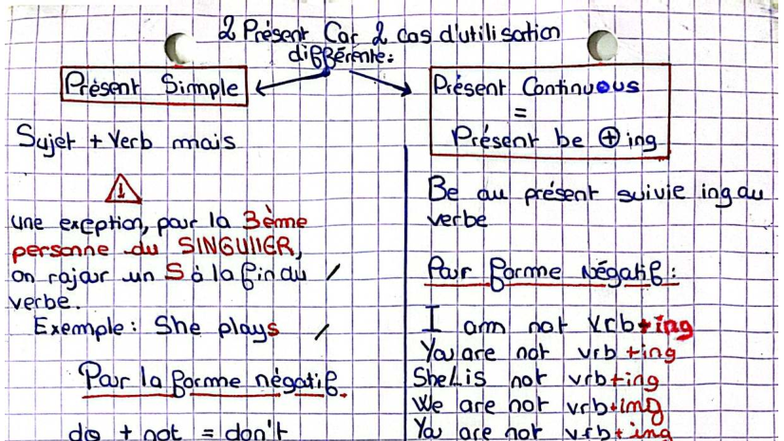 2 Présent Car 2 cas d'utilisation
différente:
Présent Simple
Sujet + Verb mais
!
une exeption, pour la 3ème
personne du SINGULIER,
on rajour un S à la fin du /
verbe.
Exemple: She plays /
Pour la forme négatif
do + not = don't
Présent Continuous
=
Présent be + ing
Be au présent suivie ing au
verbe
Pour forme Négatif:
I am not vrb+ing
You are not vrb +ing
She is not vrb+ing
We are not vrb+ing
You are not vrb+ing